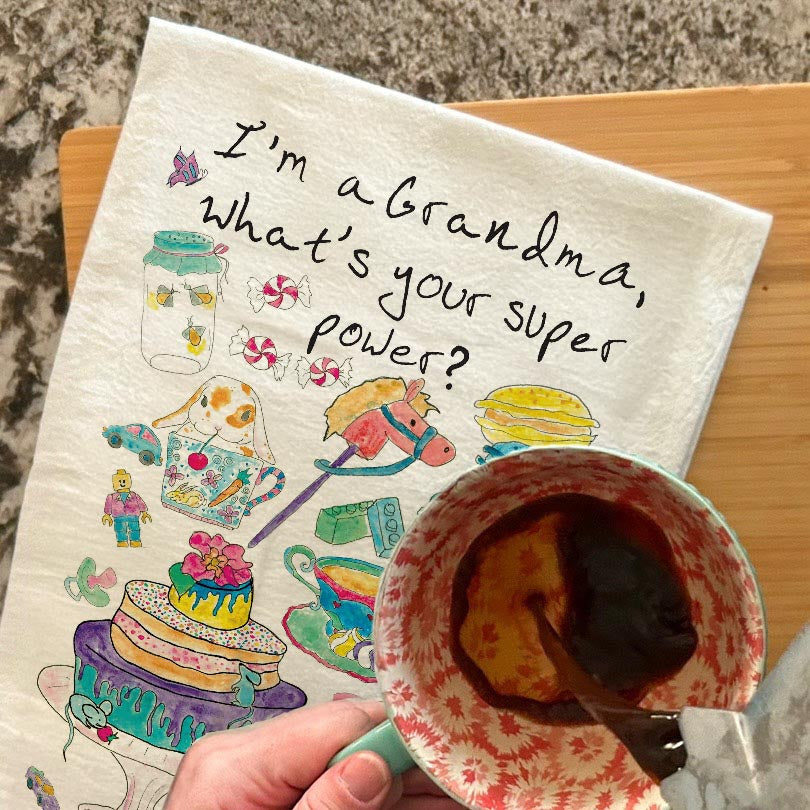 I'm a Grandma,
what's your super
power?